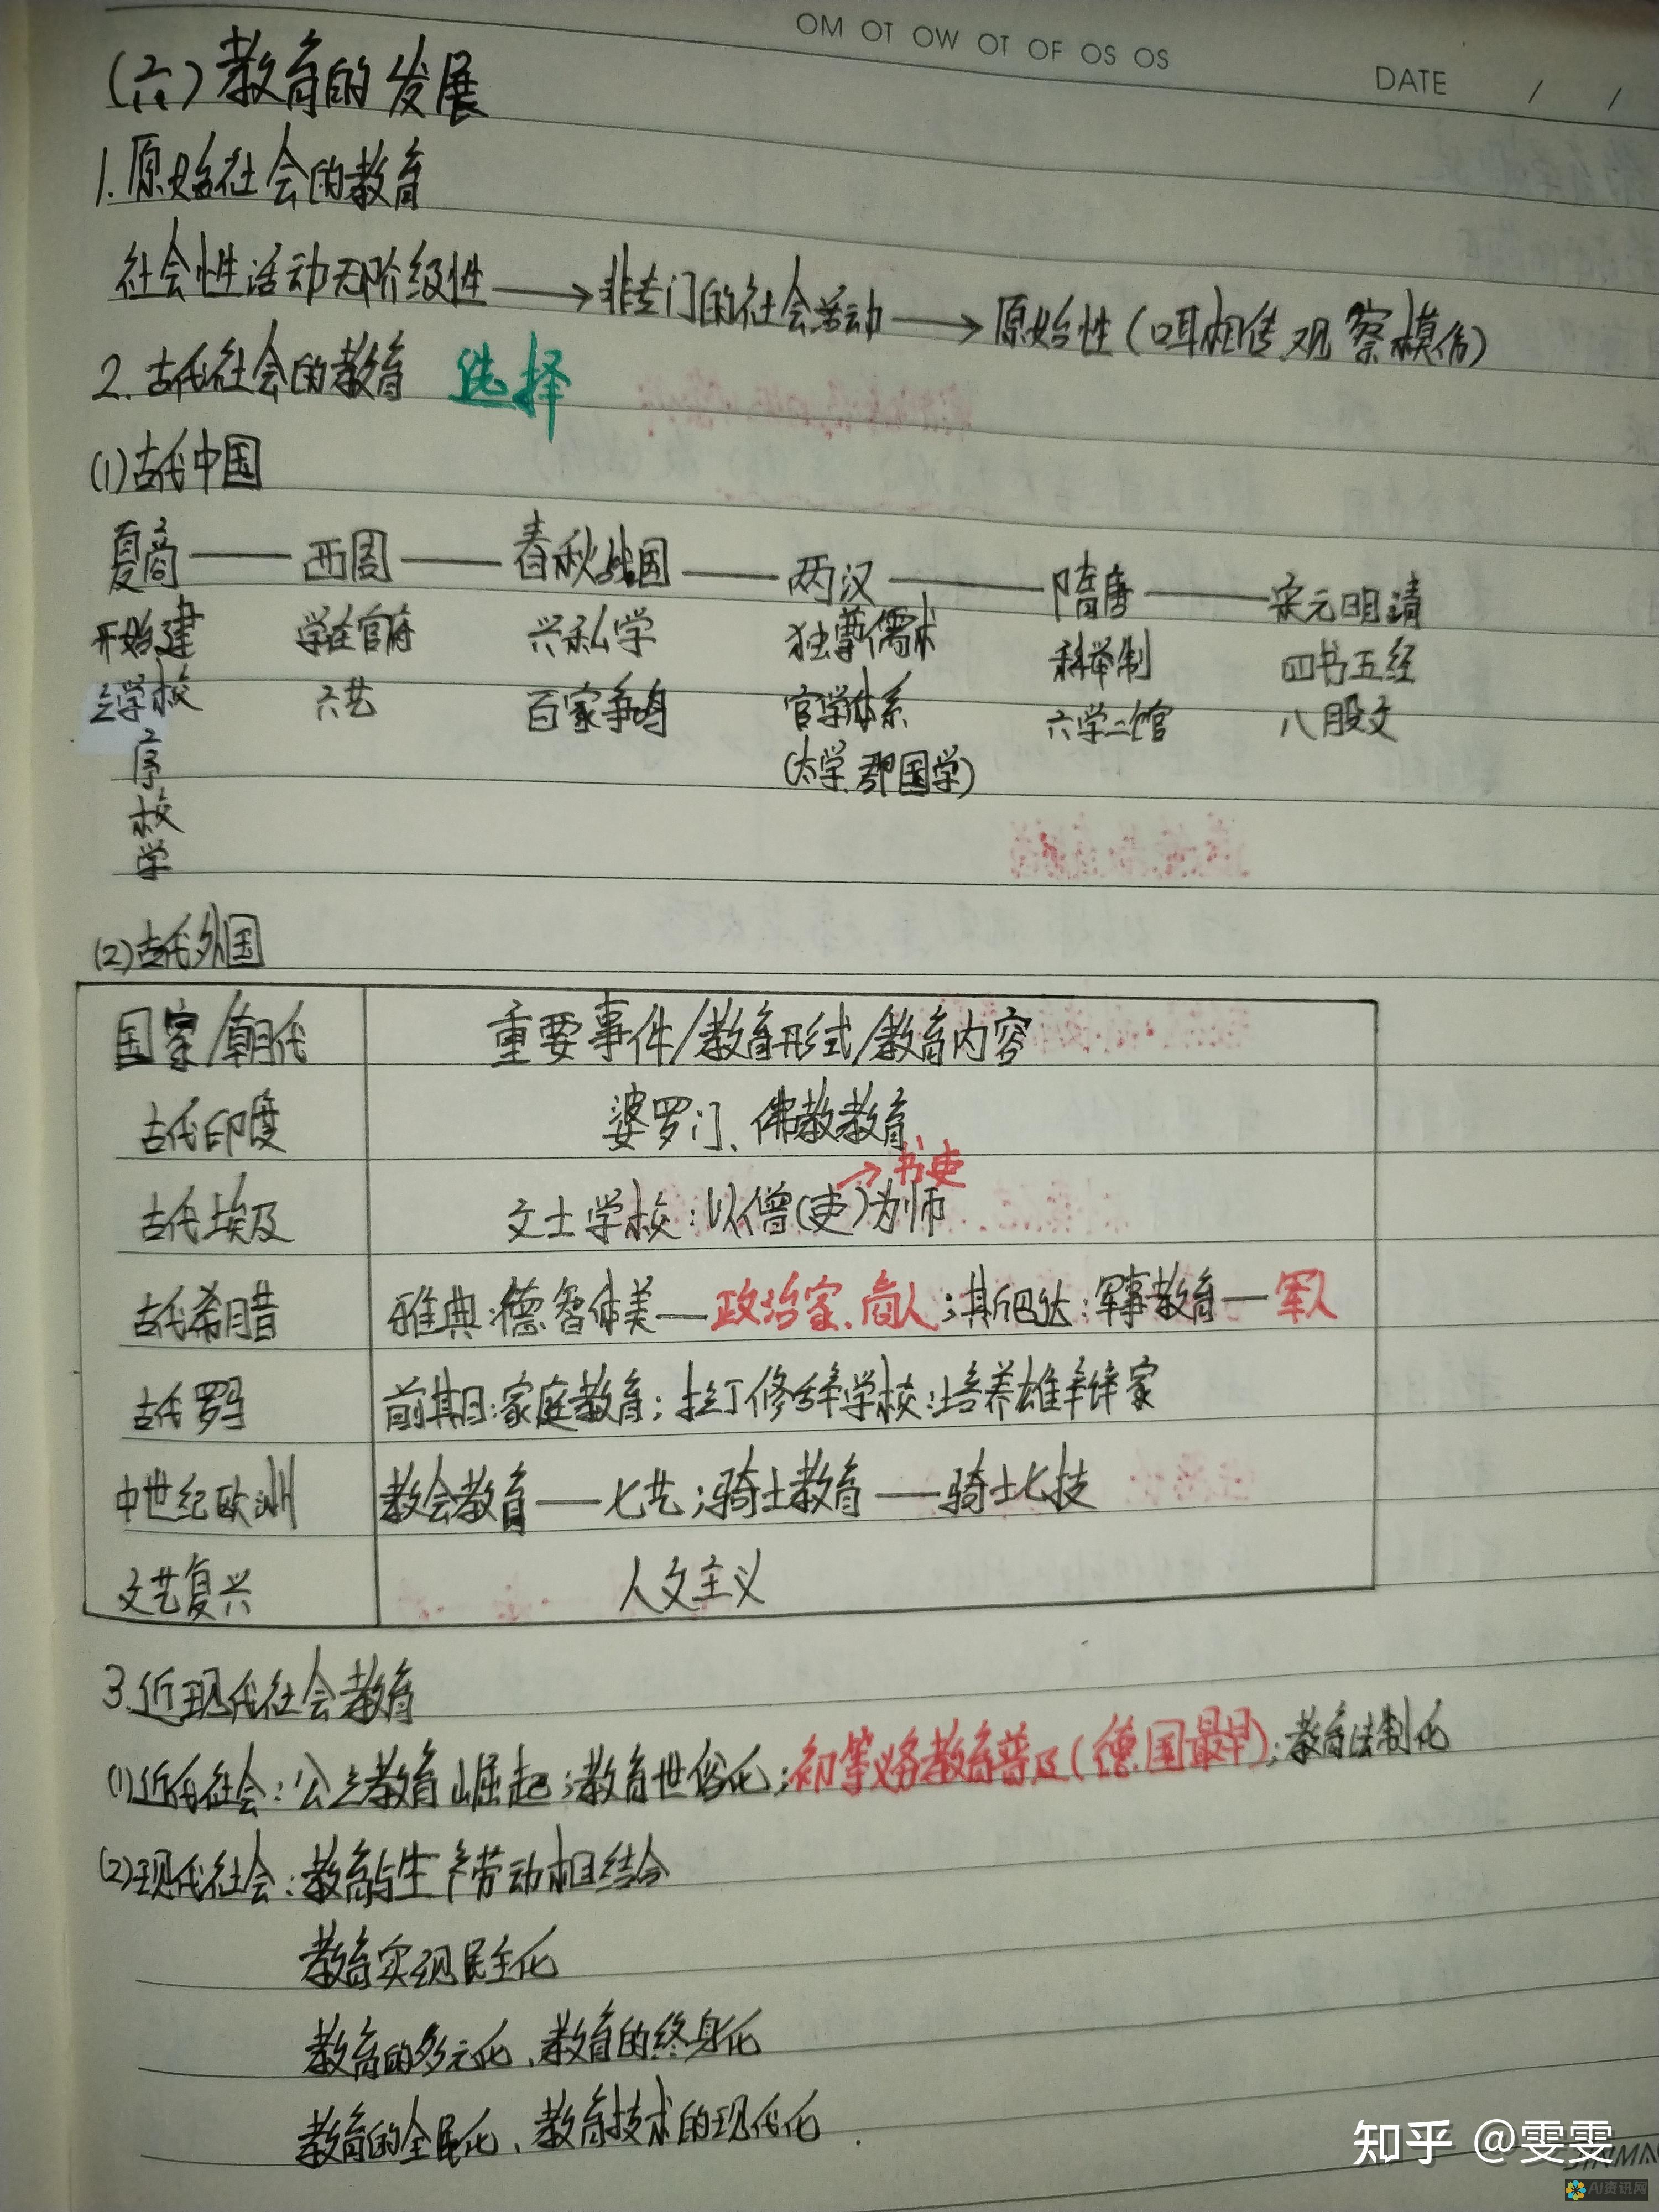 OM OT OW OT OF OS OS
DATE / /
(六)教育的发展
1.原始社会的教育
社会性活动无阶级性→非专门的社会活动→原始性(口耳相传.观察模仿)
2.古代社会的教育 选择
(1)古代中国
夏商——西周——春秋战国——两汉——隋唐——宋元明清
开始建 学在官府 兴私学 独尊儒术 科举制 四书五经
立学校 六艺 百家争鸣 官学体系 六学二馆 八股文
序 (太学.郡国学)
校
学
(2)古代外国
国家/朝代 重要事件/教育形式/教育内容
古代印度 婆罗门、佛教教育
→书吏
古代埃及 文士学校:以僧(吏)为师
古代希腊 雅典:德智体美—政治家、商人;斯巴达:军事教育—军人
古代罗马 前期:家庭教育;拉丁修辞学校:培养雄辩家
中世纪欧洲 教会教育——七艺;骑士教育——骑士七技
文艺复兴 人文主义
3.近现代社会教育
(1)近代社会:公立教育崛起;教育世俗化;初等义务教育普及(德国最早);教育法制化
(2)现代社会:教育与生产劳动相结合
教育实现民主化
教育的多元化、教育的终身化
教育的全民化、教育技术的现代化.
知乎 @雯雯
AI资讯网